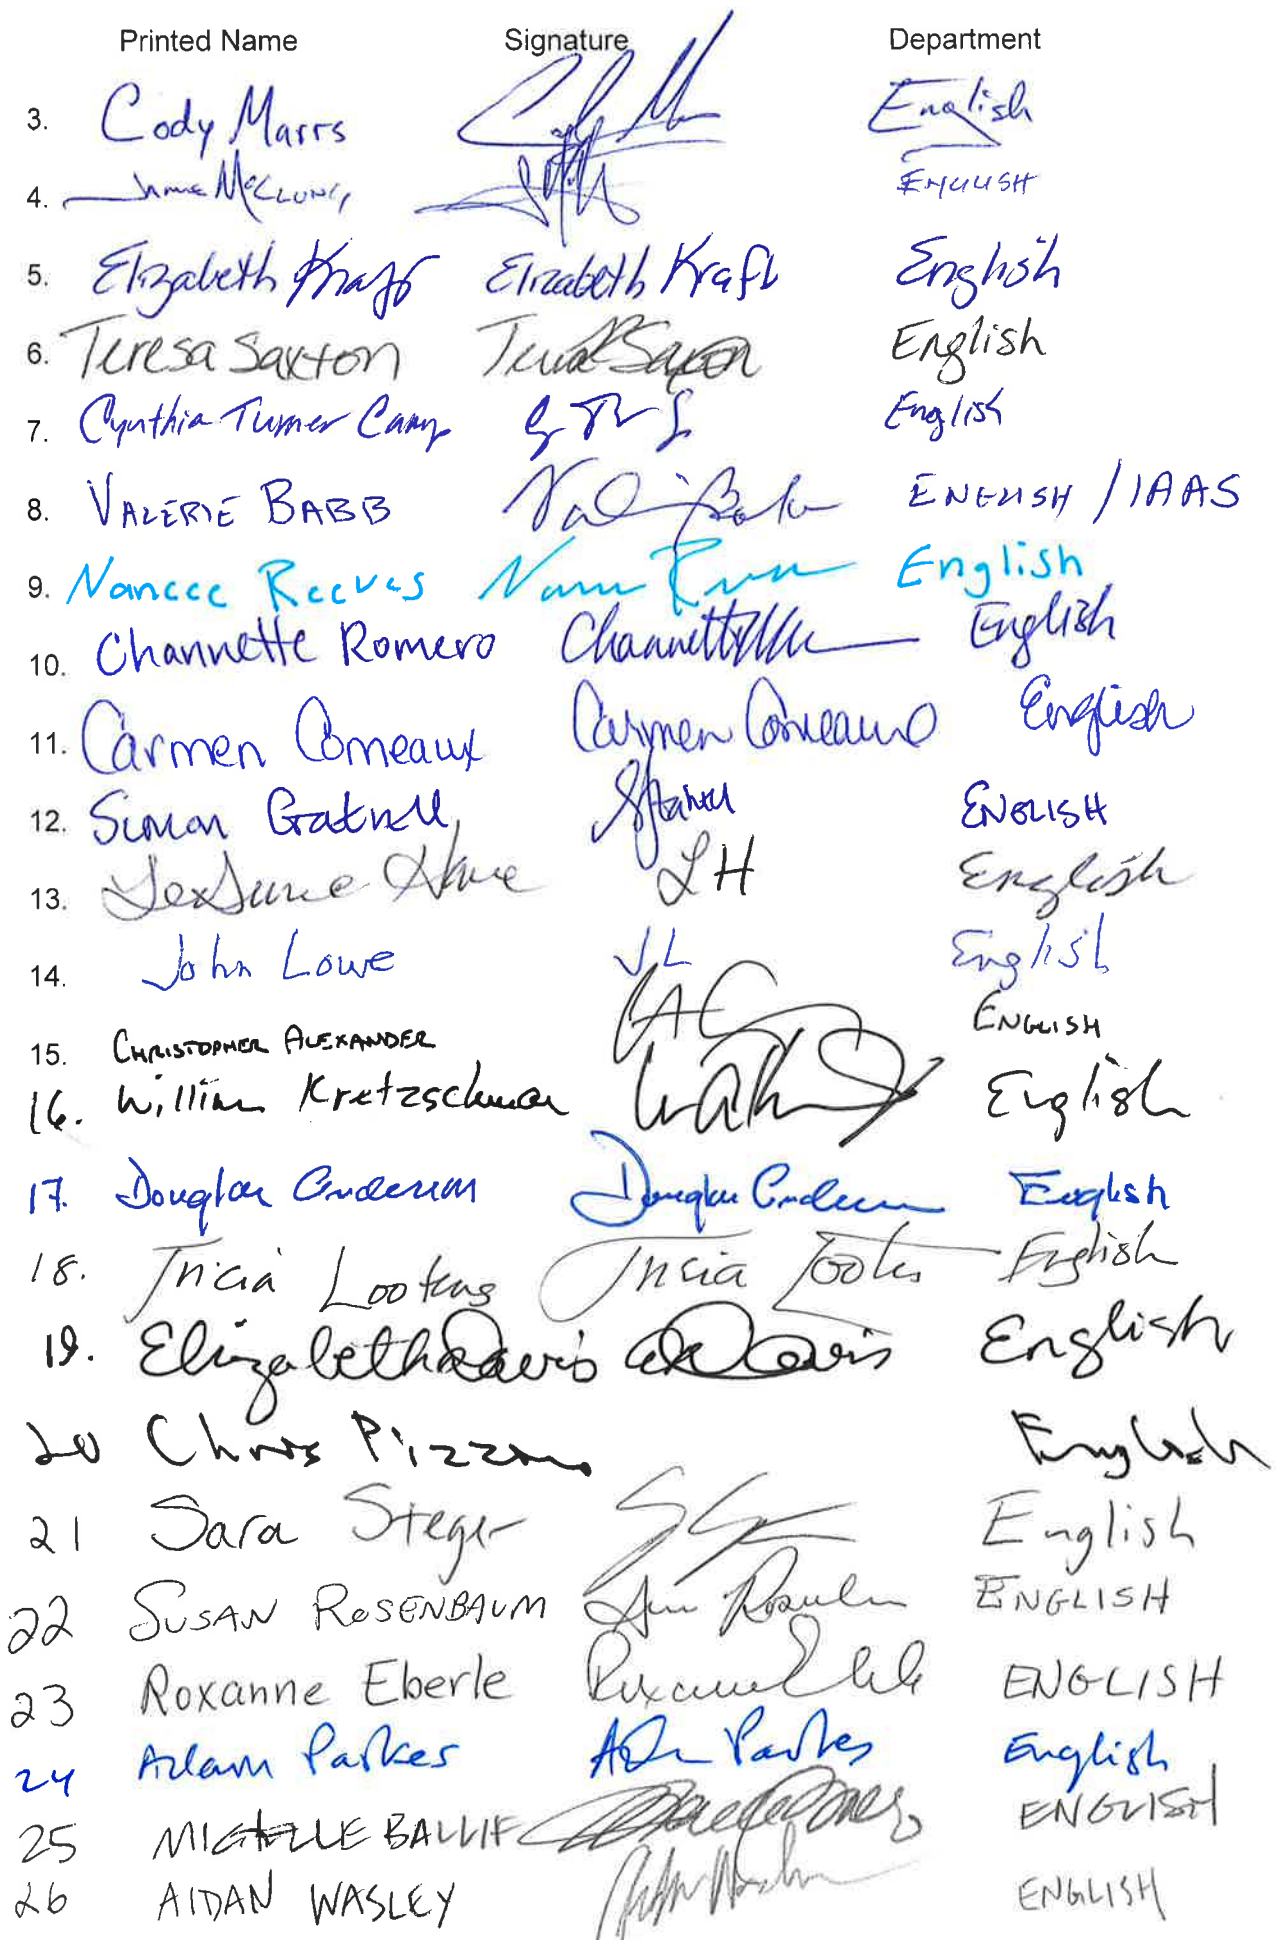 Printed Name Signature Department
3. Cody Marrs English
4. Jamie McClung English
5. Elizabeth Kraft Elizabeth Kraft English
6. Teresa Saxton Saxton English
7. Cynthia Turner Camp English
8. VALERIE BABB ENGLISH / IAAS
9. Nancee Reeves English
10. Channette Romero Channette English
11. Carmen Comeaux Carmen Comeaux English
12. Simon Gatrell ENGLISH
13. LH English
14. John Lowe JL English
15. CHRISTOPHER ALEXANDER ENGLISH
16. William Kretzschmar English
17. Douglas Anderson Douglas Anderson English
18. Tricia Lootens Tricia Lootens English
19. Elizabeth Davis Davis English
20 Chris Pizzino English
21 Sara Steger English
22 SUSAN ROSENBAUM ENGLISH
23 Roxanne Eberle ENGLISH
24 Adam Parkes Parkes English
25 MICHELLE BALLIF ENGLISH
26 AIDAN WASLEY ENGLISH